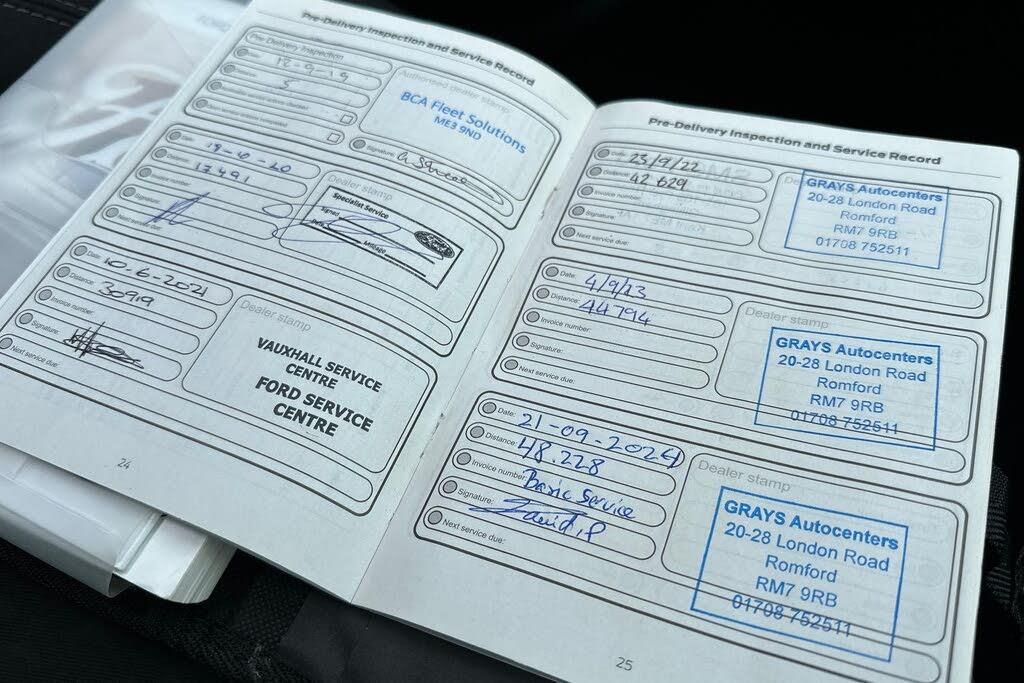 Pre-Delivery Inspection and Service Record
Pre Delivery Inspection
Date:
12-9-19
Distance:
5
Authorised dealer stamp
BCA Fleet Solutions
ME3 9ND
Signature:
Date:
19-10-20
Distance:
17491
Invoice number:
Signature:
Next service due:
Dealer stamp
Specialist Service
Signed
Date
Mileage
Ford
Date:
10.6-2021
Distance:
30919
Invoice number:
Signature:
Next service due:
Dealer stamp
VAUXHALL SERVICE
CENTRE
FORD SERVICE
CENTRE
24
Pre-Delivery Inspection and Service Record
Date:
23/9/22
Distance:
42629
Invoice number:
Signature:
Next service due:
GRAYS Autocenters
20-28 London Road
Romford
RM7 9RB
01708 752511
Date:
4/9/23
Distance:
44794
Invoice number:
Signature:
Next service due:
Dealer stamp
GRAYS Autocenters
20-28 London Road
Romford
RM7 9RB
01708 752511
Date:
21-09-2024
Distance:
48.228
Invoice number:
Basic Service
Signature:
David.P
Next service due:
Dealer stamp
GRAYS Autocenters
20-28 London Road
Romford
RM7 9RB
01708 752511
25